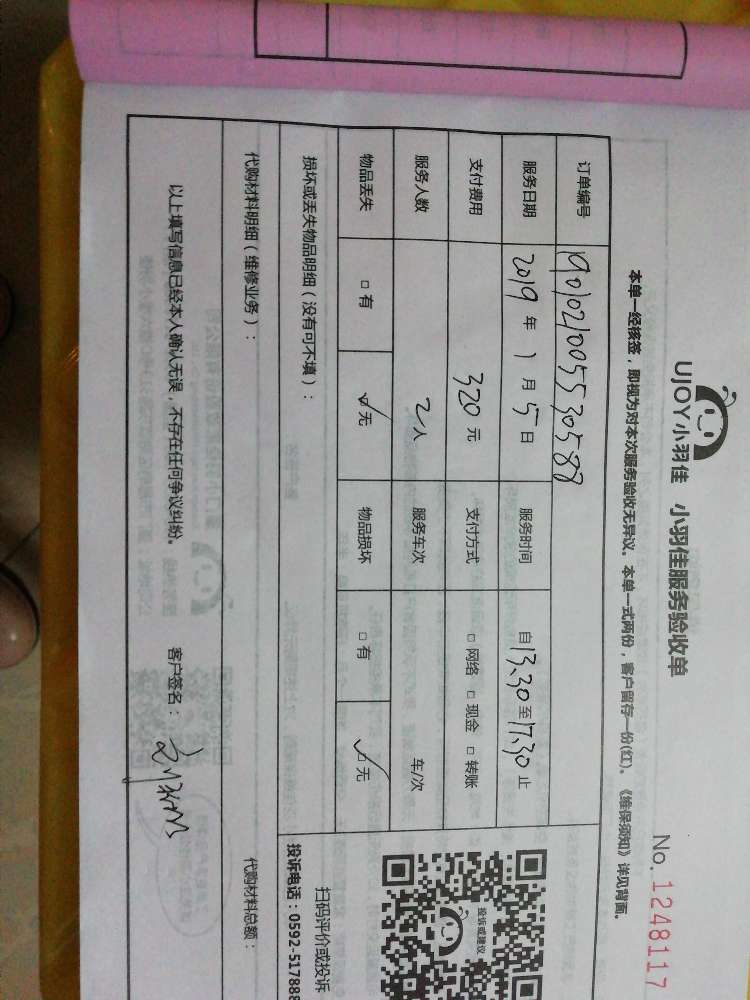 UJOY小羽佳 小羽佳服务验收单
No. 1248117
本单一经核签，即视为对本次服务验收无异议。本单一式两份，客户留存一份(红)。《维保须知》详见背面。
订单编号 19010210055305 88
服务日期 2019 年 1 月 5 日 服务时间 自 13.30 至 17.30 止
支付费用 320 元 支付方式 □ 网络 □ 现金 □ 转账
服务人数 2 人 服务车次 车/次
物品丢失 □ 有 ☑ 无 物品损坏 □ 有 ☑ 无
投诉或建议
扫码评价或投诉
投诉电话：0592-517888
损坏或丢失物品明细（没有可不填）：
代购材料明细（维修业务）： 代购材料总额：
以上填写信息已经本人确认无误，不存在任何争议纠纷。 客户签名：